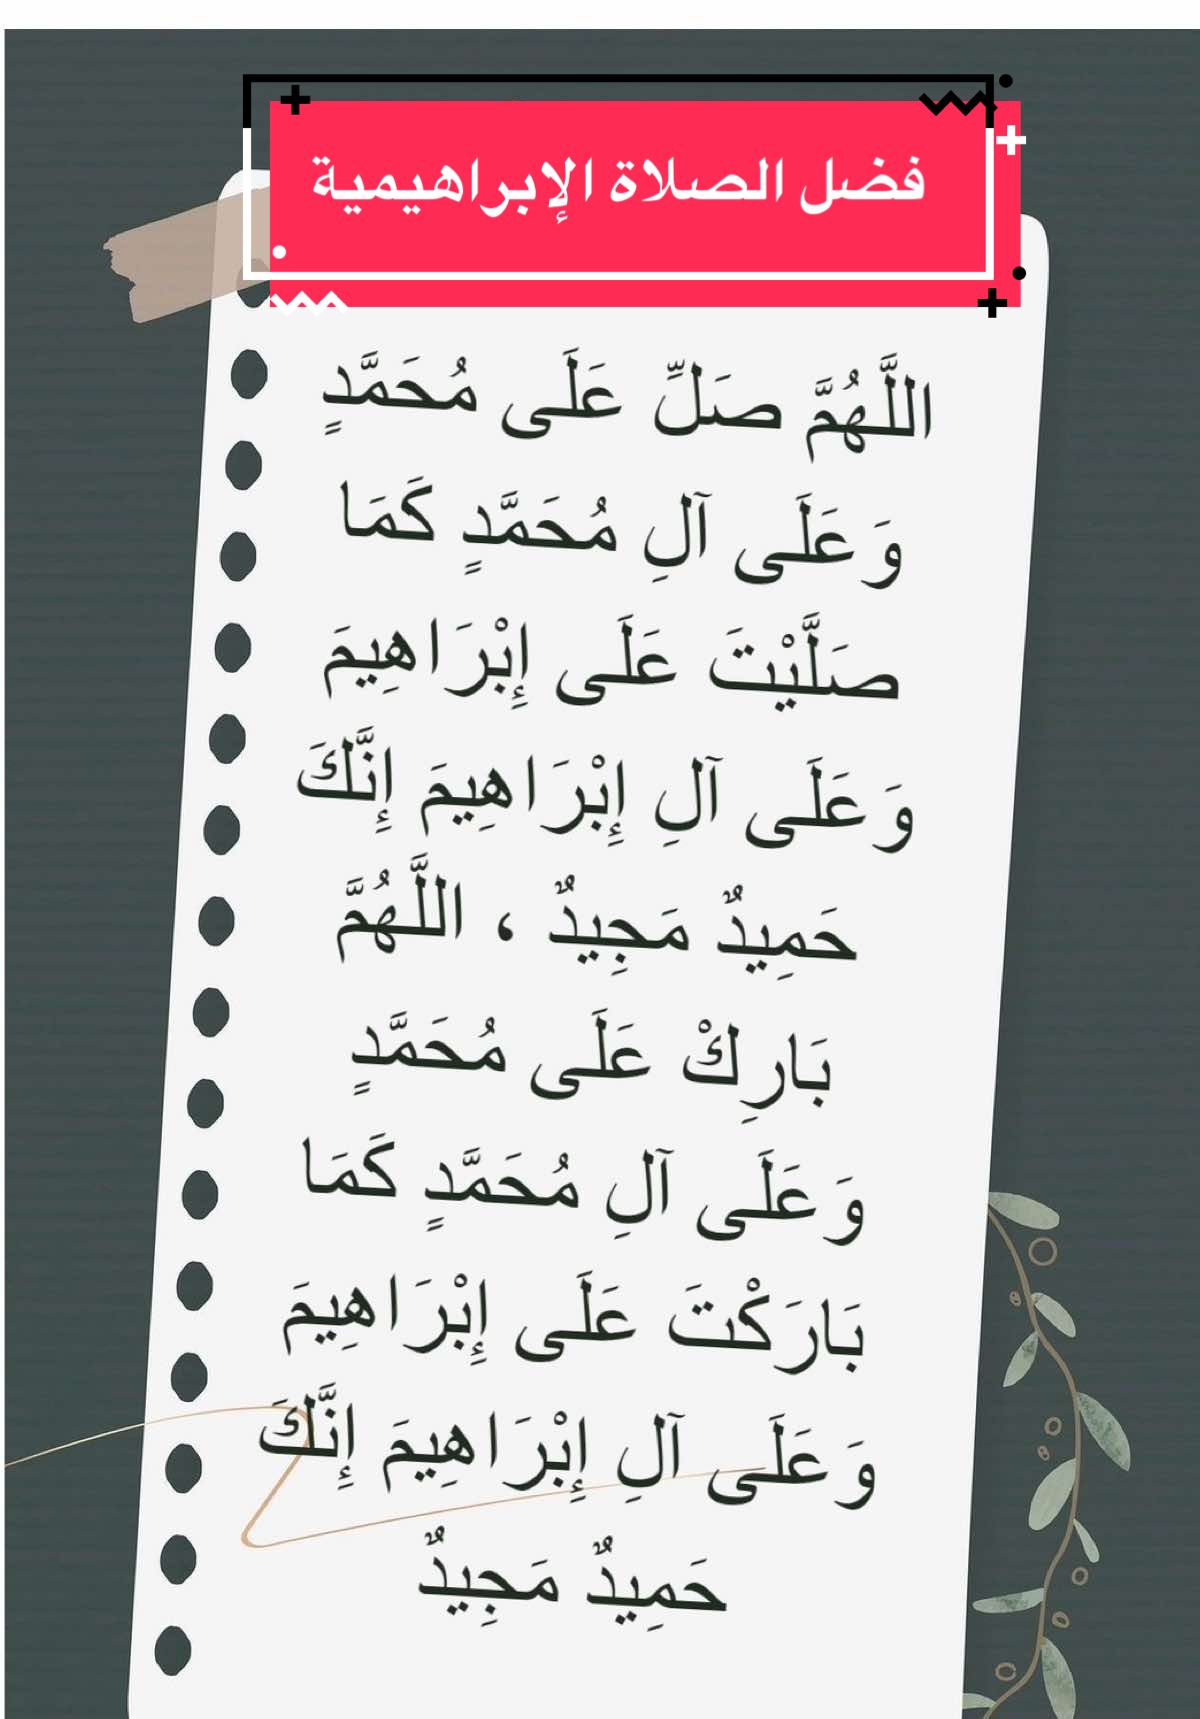 فضل الصلاة الإبراهيمية
اللَّهُمَّ صَلِّ عَلَى مُحَمَّدٍ
وَعَلَى آلِ مُحَمَّدٍ كَمَا
صَلَّيْتَ عَلَى إِبْرَاهِيمَ
وَعَلَى آلِ إِبْرَاهِيمَ إِنَّكَ
حَمِيدٌ مَجِيدٌ ، اللَّهُمَّ
بَارِكْ عَلَى مُحَمَّدٍ
وَعَلَى آلِ مُحَمَّدٍ كَمَا
بَارَكْتَ عَلَى إِبْرَاهِيمَ
وَعَلَى آلِ إِبْرَاهِيمَ إِنَّكَ
حَمِيدٌ مَجِيدٌ